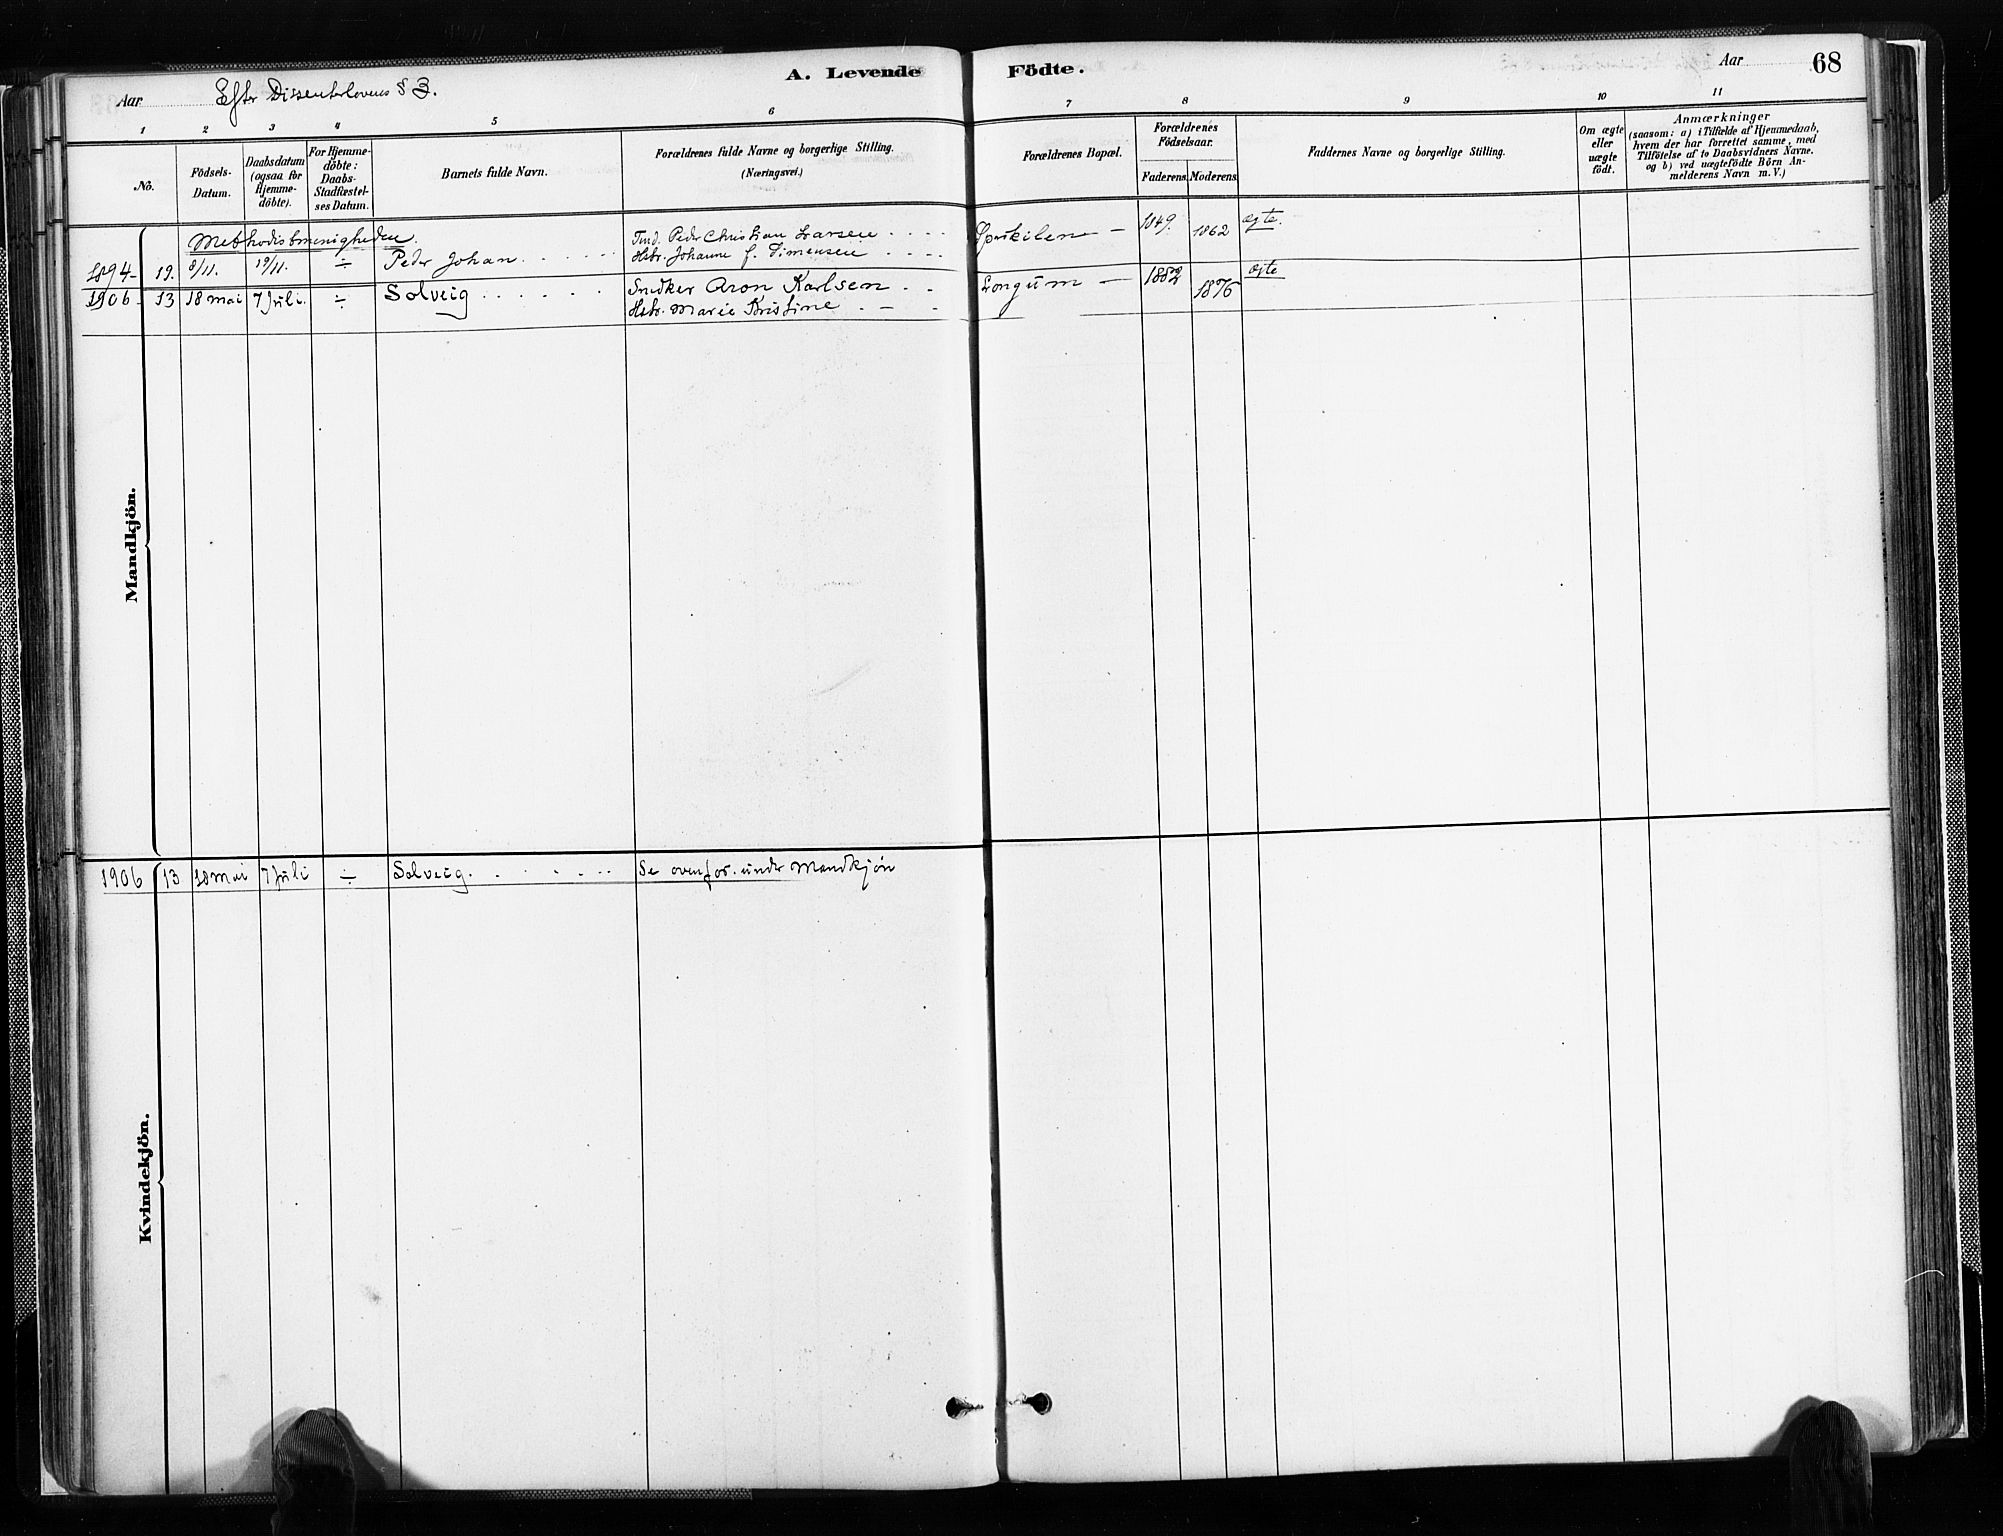 A. Levende Födte.
Aar 68
Aar Efter Dissenterlovens § 3.
1 2 3 4 5 6 7 8 9 10 11
No.
Födsels-Datum.
Daabsdatum (ogsaa for Hjemme-döbte).
For Hjemme-döbte: Daabs-Stadfæstel-ses Datum.
Barnets fulde Navn.
Forældrenes fulde Navne og borgerlige Stilling.
(Næringsvei.)
Forældrenes Bopæl.
Forældrenes Födselsaar.
Faderens. Moderens.
Faddernes Navne og borgerlige Stilling.
Om ægte eller uægte födt.
Anmærkninger
(saasom: a) i Tilfælde af Hjemmedaab,
hvem der har forrettet samme, med
Tilföielse af to Daabsvidners Navne.
og b) ved uægtefödte Börn An-
melderens Navn m. V.)
Mandkjön.
Methodistmenigheden. Tmd. Peder Christian Larsen . . . . 1849. 1862 ægte.
1894- 19. 8/11. 19/11. ÷ Peder Johan . . . . . . Hstr. Johanne f. Simensen . . . .
1906- 13 18 mai 7 Juli. ÷ Solveig . . . . . . Snedker Aron Karlsen . . Longum — 1882 1876 ægte
Hstr. Marie Kristine . — .
Kvindekjön.
1906 13 18 mai 7 Juli ÷ Solveig. . . . . . . Se ovenfor. under Mandkjøn